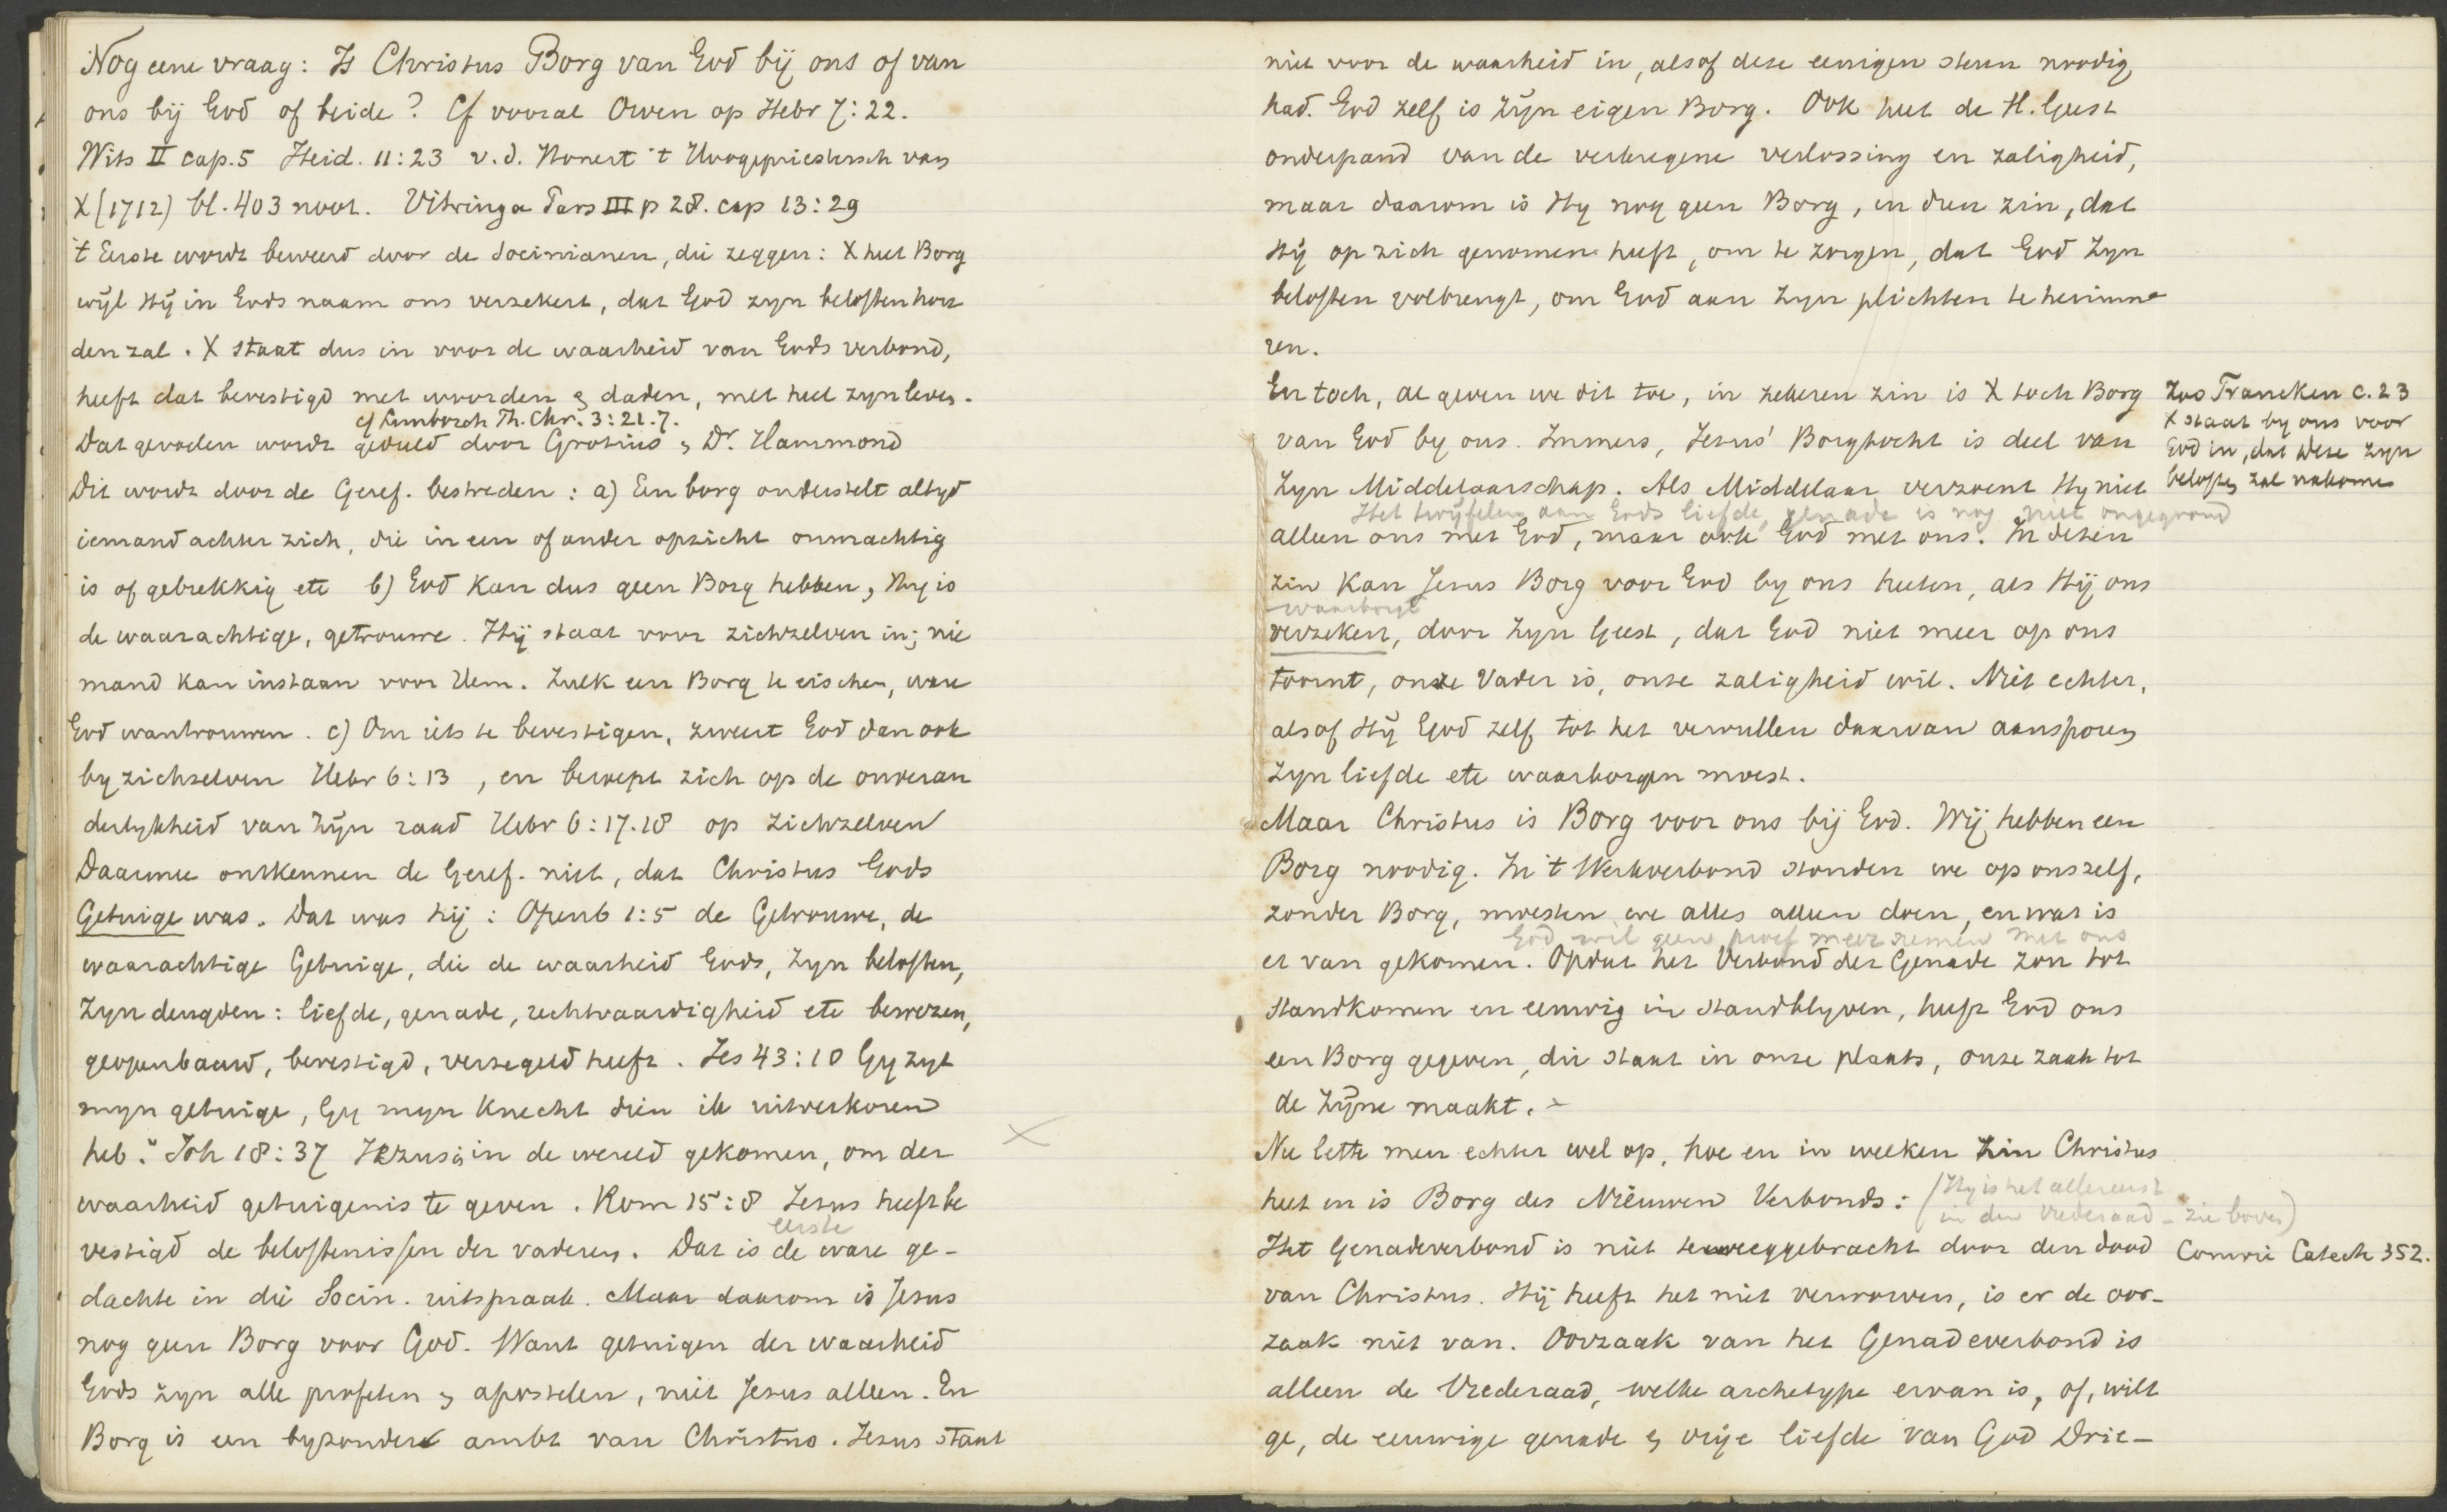 Nog eene vraag: Is Christus Borg van God bij ons of van
ons bij God of beide? Cf vooral Owen op Hebr 7:22.
Wits II cap.5 Heid. 11:23 v.d. Honert 't Hoogepriestersch van
X (1712) bl. 403 noot. Vitringa Pars III p 28. cap 13:29
't Eerste wordt beweerd door de Socinianen, die zeggen: X heet Borg
wijl Hij in Gods naam ons verzekert, dat God zyn beloften hou
den zal. X staat dus in voor de waarheid van Gods verbond,
heeft dat bevestigd met woorden & daden, met heel zyn leven.
cf Limborch Th. Chr. 3:21.7.
Dat gevoelen wordt gedeeld door Grotius & Dr. Hammond
Dit wordt door de Geref. bestreden: a) Een borg onderstelt altyd
iemand achter zich, die in een of ander opzicht onmachtig
is of gebrekkig etc b) God kan dus geen Borg hebben, Hy is
de waarachtige, getrouwe. Hij staat voor zichzelven in; nie
mand kan instaan voor Hem. Zulk een Borg te eischen, ware
God wantrouwen. c) Om iets te bevestigen, zweert God dan ook
by zichzelven Hebr 6:13, en beroept zich op de onveran
derlykheid van Zijn raad Hebr 6:17.18 op zichzelven
Daarmee ontkennen de Geref. niet, dat Christus Gods
Getuige was. Dat was hij: Openb 1:5 de Getrouwe, de
waarachtige Getuige, die de waarheid Gods, Zyn beloften,
Zyn deugden: liefde, genade, rechtvaardigheid etc bewezen,
geopenbaard, bevestigd, verzegeld heeft. Jes 43:10 Gy zyt
myn getuige, Gy myn Knecht dien ik uitverkoren
heb." Joh 18:37 Jezus is in de wereld gekomen, om der
waarheid getuigenis te geven. Rom 15:8 Jezus heeft be
vestigd de beloftenissen der vaderen. Dat is de ware ge-
eerste
dachte in die Socin. uitspraak. Maar daarom is Jesus
nog geen Borg voor God. Want getuigen der waarheid
Gods zyn alle profeten & apostelen, niet Jesus alleen. En
Borg is een byzonder ambt van Christus. Jezus staat
niet voor de waarheid in, alsof deze eenigen steun noodig
had. God zelf is Zijn eigen Borg. Ook heet de H. Geest
onderpand van de verkregene verlossing en zaligheid,
maar daarom is Hy nog geen Borg, in dien zin, dat
Hij op zich genomen heeft, om te zorgen, dat God Zyn
beloften volbrengt, om God aan Zyn plichten te herinne
ren.
En toch, al geven we dit toe, in zekeren zin is X toch Borg
van God by ons. Immers, Jesus' Borgtocht is deel van
Zyn Middelaarschap. Als Middelaar verzoent Hy niet
Het twijfelen aan Gods liefde, genade is nog niet ongegrond
alleen ons met God, maar ook God met ons. In dezen
zin kan Jesus Borg voor God by ons heeten, als Hij ons
waarborgt
verzekert, door Zyn Geest, dat God niet meer op ons
toornt, onze Vader is, onze zaligheid wil. Niet echter,
alsof Hij God zelf tot het vervullen daarvan aansporen
Zyn liefde etc waarborgen moest.
Zoo Francken c.23
X staat by ons voor
God in, dat deze Zyn
beloften zal nakomen
Maar Christus is Borg voor ons bij God. Wij hebben een
Borg noodig. In 't Werkverbond stonden we op onszelf,
zonder Borg, moesten we alles alleen doen, en wat is
God wil geen proef meer nemen met ons
er van gekomen. Opdat het Verbond der Genade zou tot
standkomen en eeuwig in standblyven, heeft God ons
een Borg gegeven, die staat in onze plaats, onze zaak tot
de Zijne maakt.
Nu lette men echter wel op, hoe en in welken zin Christus
heet en is Borg des Nieuwen Verbonds: (Hy is het allereerst
in den Vrederaad - zie boven)
Het Genadeverbond is niet teweeggebracht door den dood
Comrie Catech 352.
van Christus. Hij heeft het niet verworven, is er de oor-
zaak niet van. Oorzaak van het Genadeverbond is
alleen de Vrederaad, welke archetype ervan is, of, wilt
ge, de eeuwige genade & vrije liefde van God Drie-